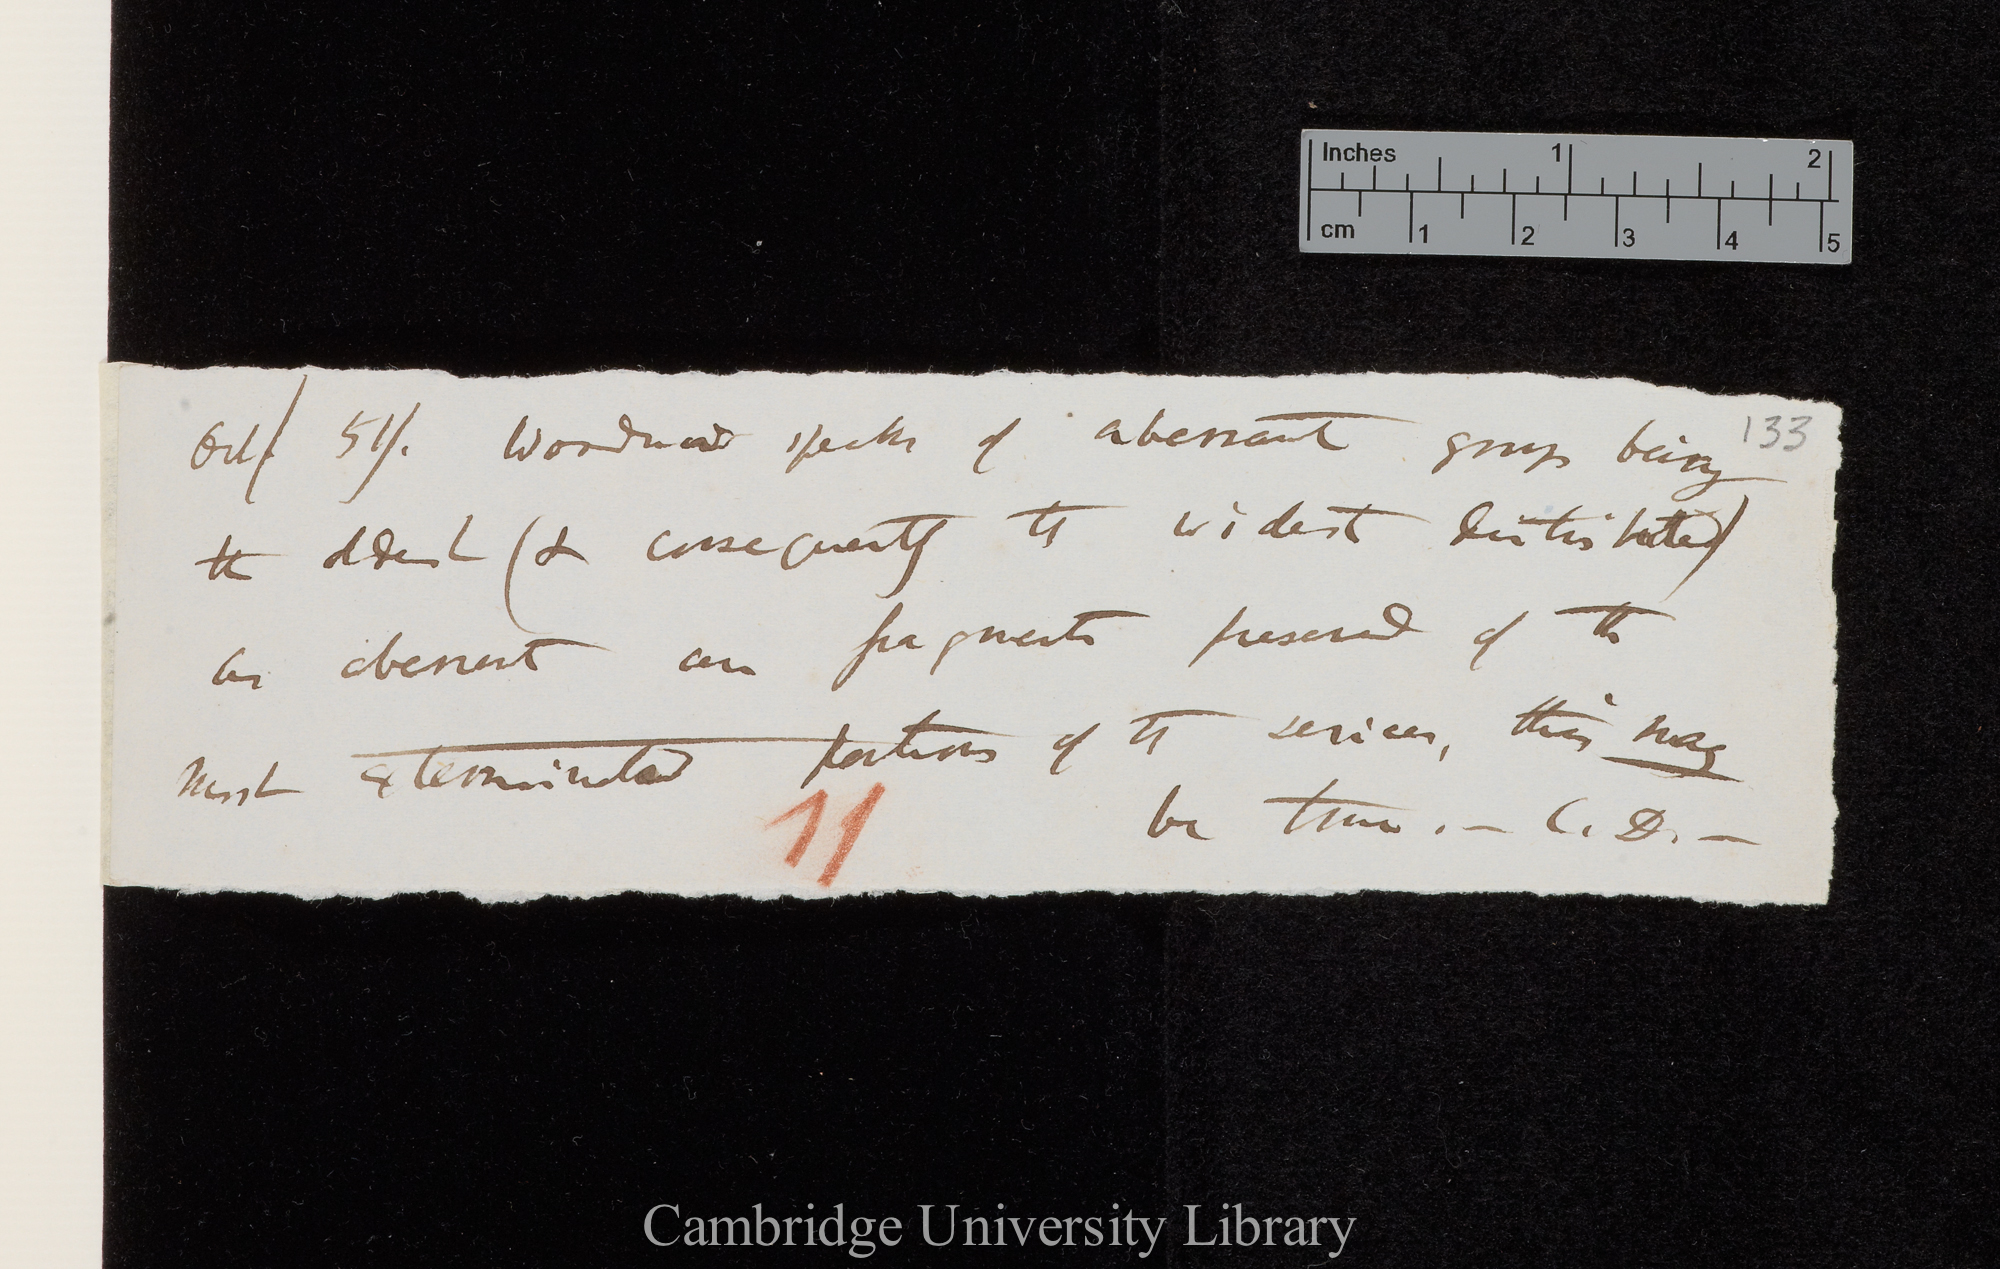 Inches 1 2
cm 1 2 3 4 5
133
Oct/ 51/. Woodward speaks of aberrant groups being
the oldest (& consequently the widest distributed)
as aberrant are fragments preserved of the
most exterminated portions of the series, this may
be true. — C. D. —
11
Cambridge University Library